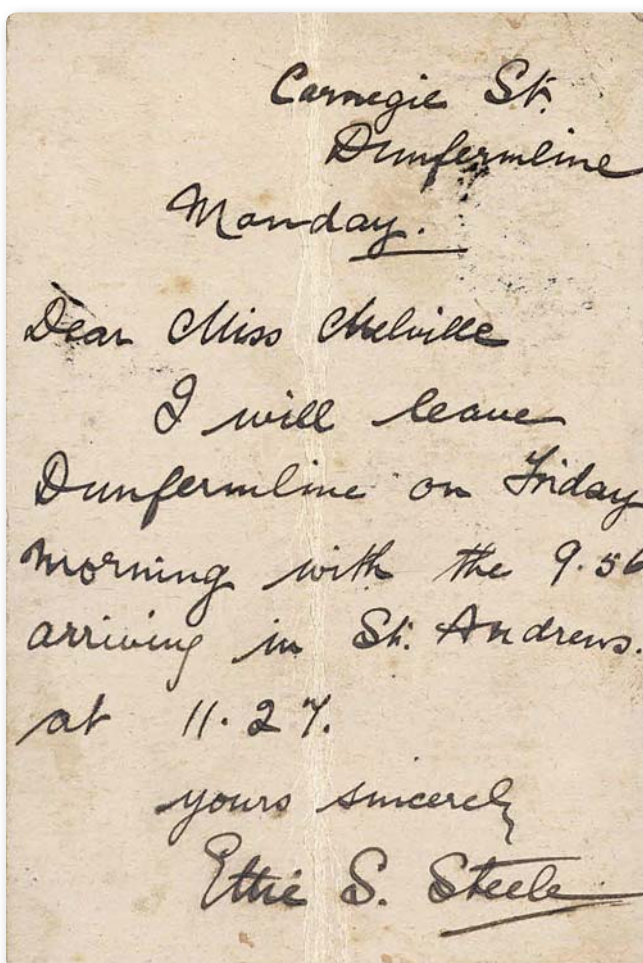 Carnegie St.
Dunfermline
Monday.
Dear Miss Melville
I will leave
Dunfermline on Friday
morning with the 9.56
arriving in St. Andrews.
at 11.27.
yours sincerely
Ettie S. Steele